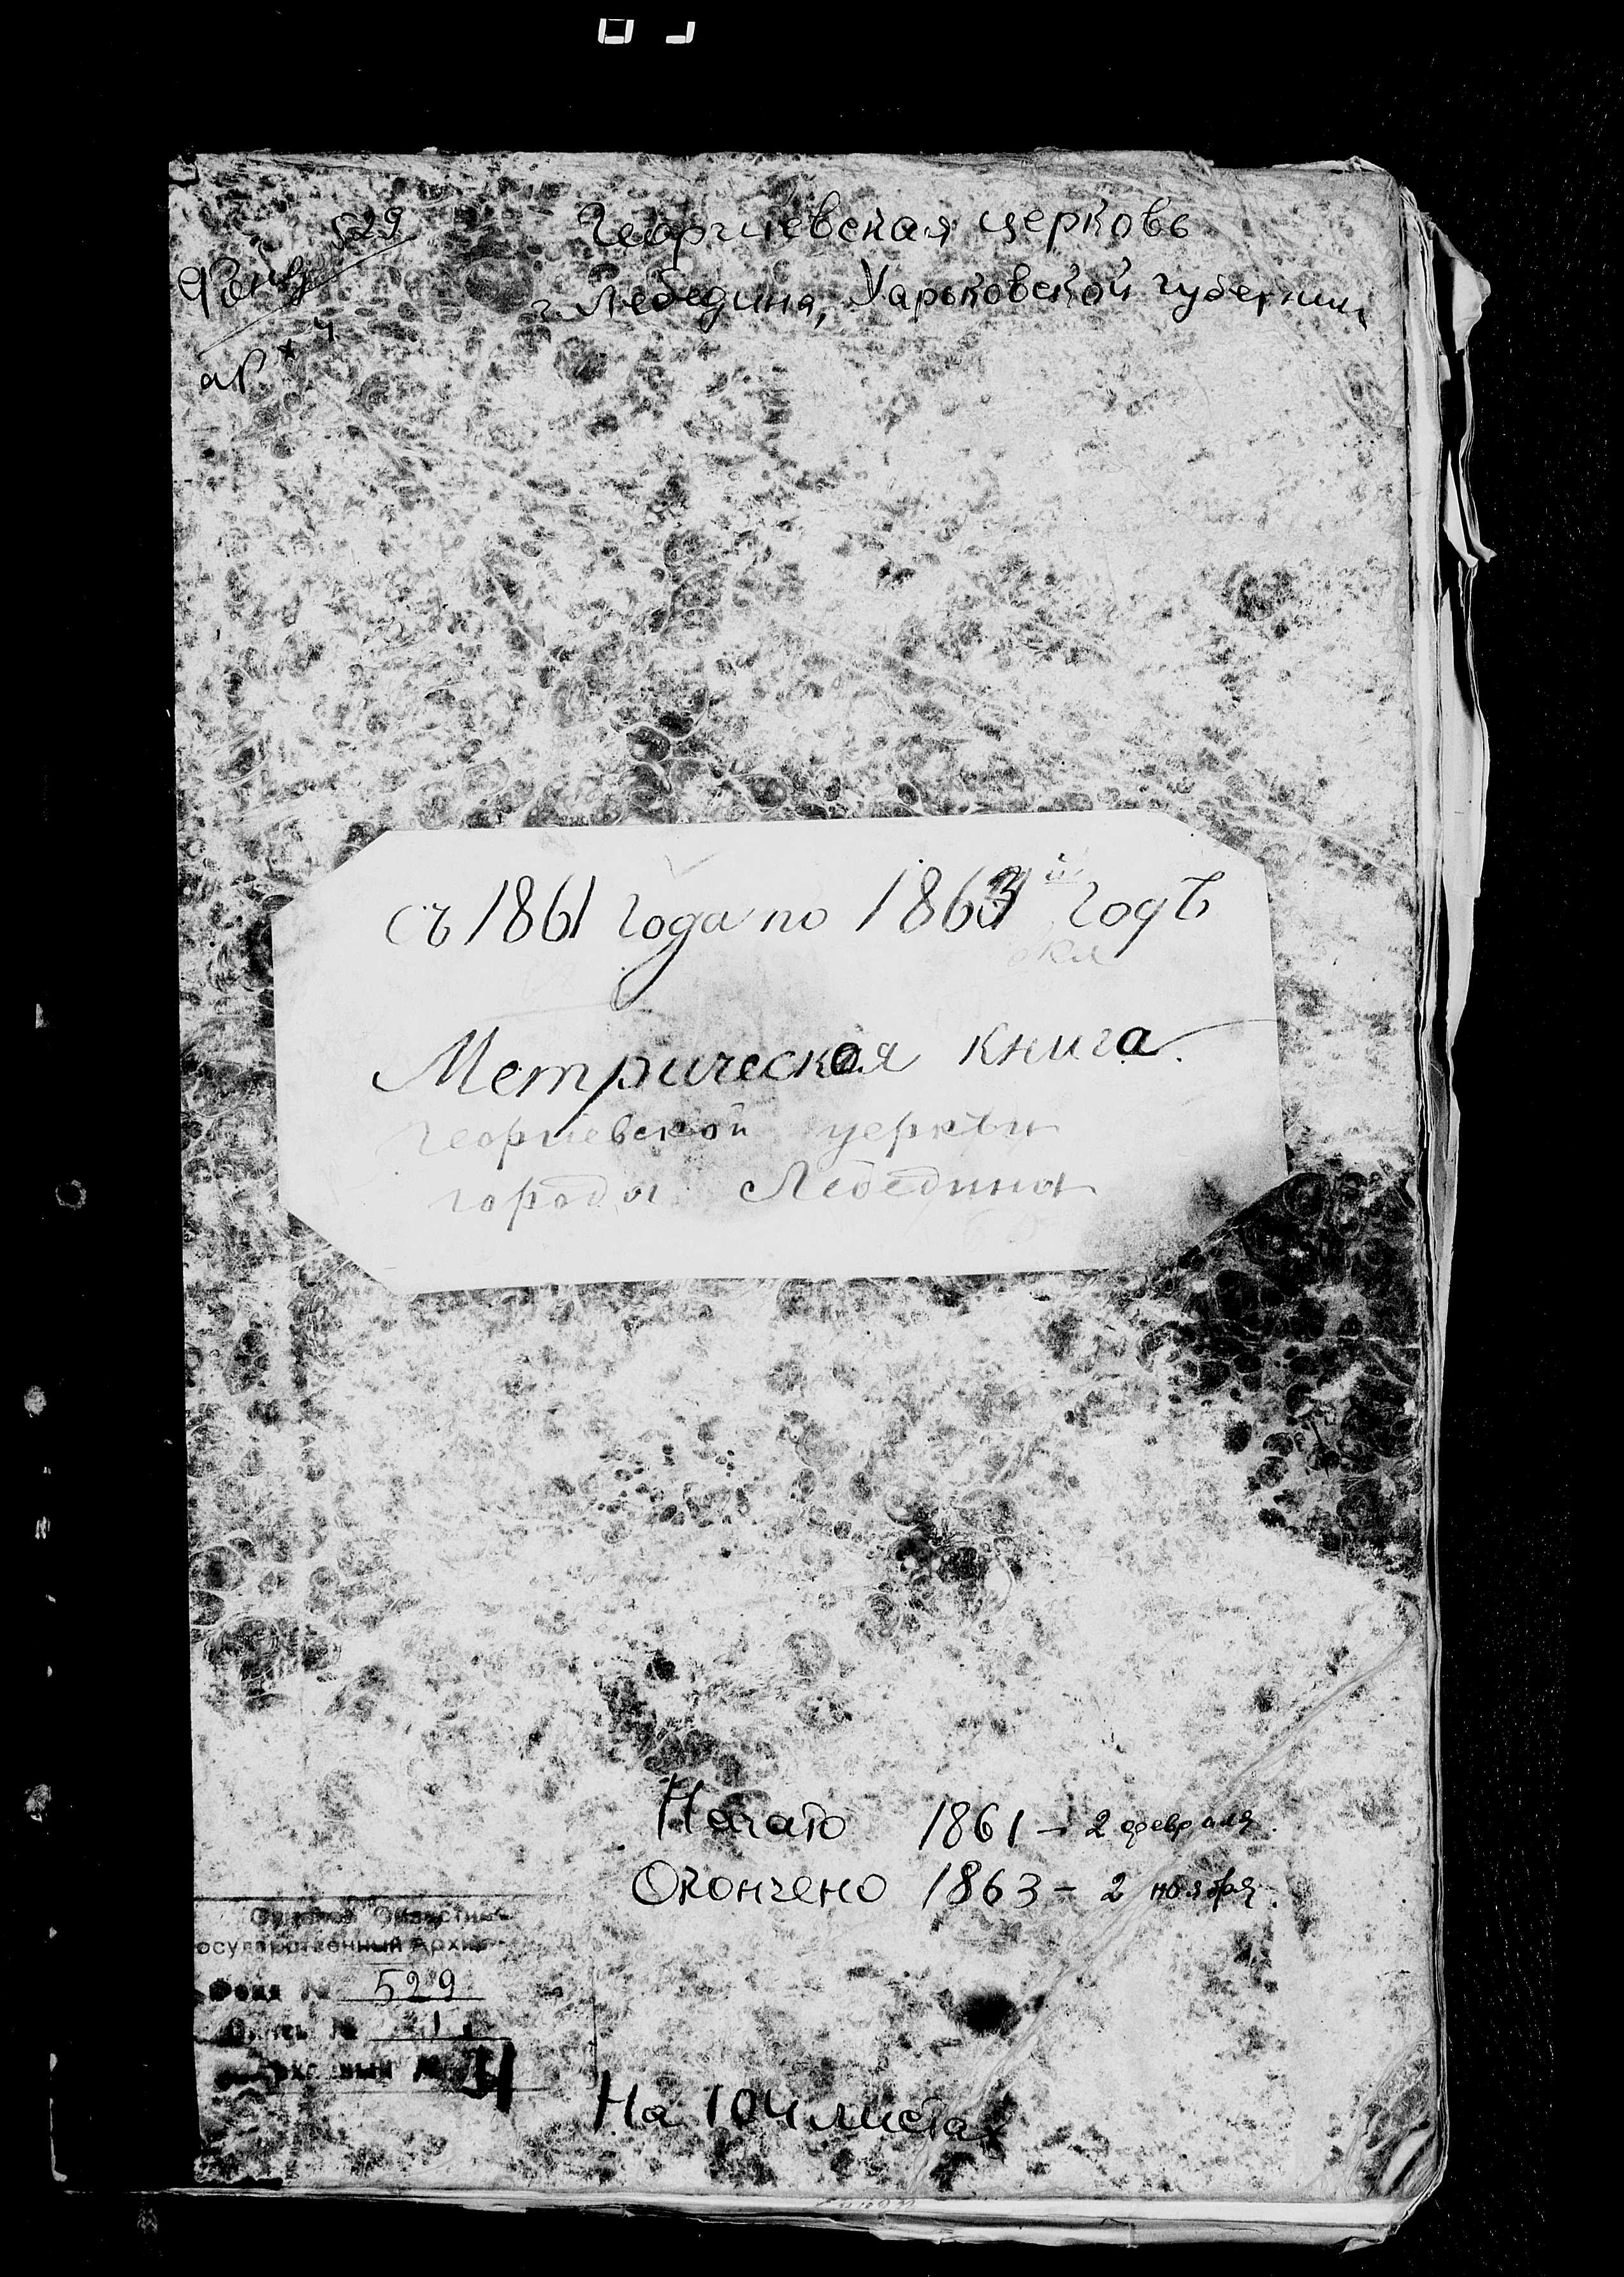 529
Фонд
Георгиевская церковь
г. Лебедина, Харьковской губернии
съ 1861 года по 1863й годъ
Метрическая книга.
Георгиевской церкви
города Лебедина
Начато 1861 – 2 февраля.
Окончено 1863 – 2 ноября.
Сумской Областной
осударственный Архив
Фонд № 529
Опись № 1
Архивный №
На 104 листах